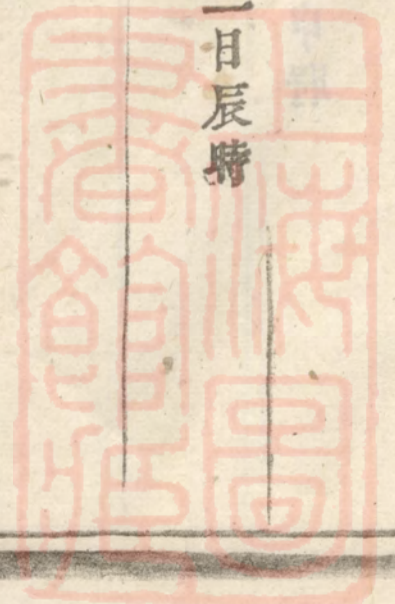 一日辰時
上海圖
書館藏